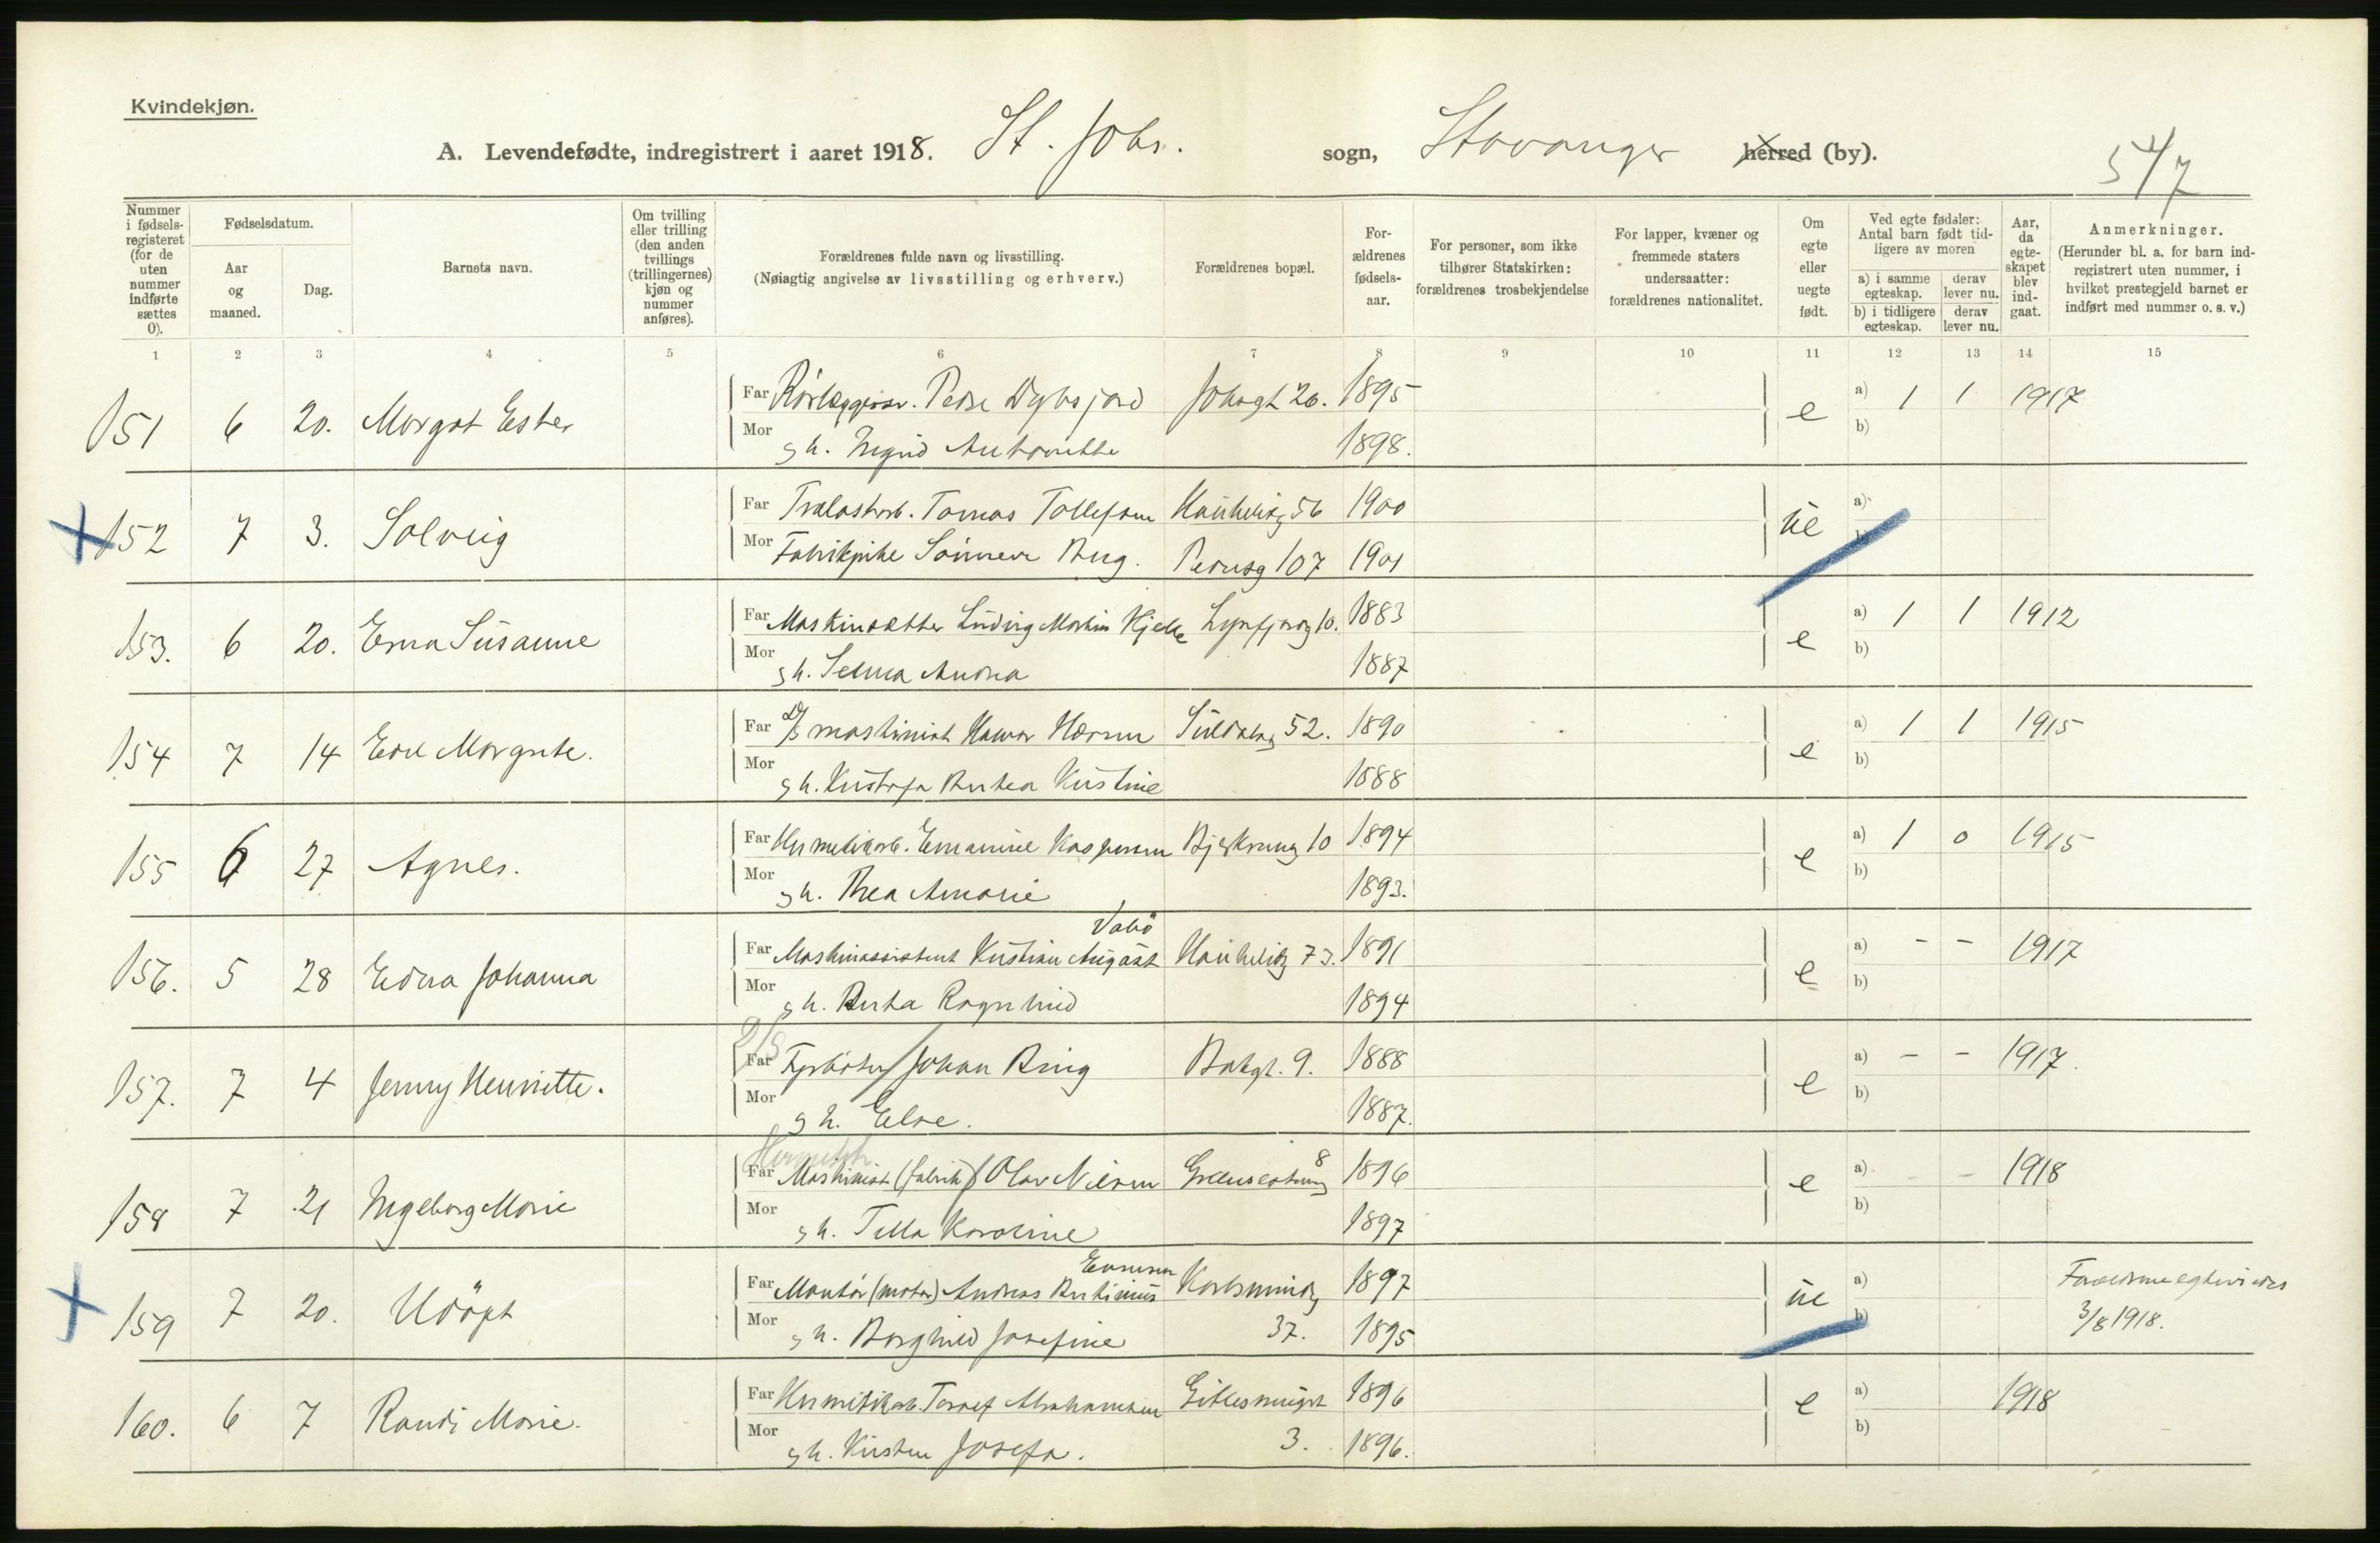 Kvindekjøn.
A. Levendefødte, indregistrert i aaret 1918. St. Johs. sogn, Stavanger herred (by).
Nummer i fødselsregisteret (for de uten nummer indførte sættes 0).
Fødselsdatum.
Aar og maaned.
Dag.
Barnets navn.
Om tvilling eller trilling (den anden tvillings (trillingernes) kjøn og nummer anføres).
Forældrenes fulde navn og livsstilling.
(Nøiagtig angivelse av livsstilling og erhverv.)
Forældrenes bopæl.
Forældrenes fødselsaar.
For personer, som ikke tilhører Statskirken: forældrenes trosbekjendelse
For lapper, kvæner og fremmede staters undersaatter: forældrenes nationalitet.
Om egte eller uegte født.
Ved egte fødsler: Antal barn født tidligere av moren
a) i samme egteskap. derav lever nu.
b) i tidligere egteskap. derav lever nu.
Aar, da egteskapet blev indgaat.
Anmerkninger.
(Herunder bl. a. for barn indregistrert uten nummer, i hvilket prestegjeld barnet er indført med nummer o. s. v.)
1 2 3 4 5 6 7 8 9 10 11 12 13 14 15
151 6 20. Margot Ester Far Peder Johsgt 26. 1895 e a) 1 1 1917
Mor h. Ingrid Antonette 1898. b)
152 7 3. Solveig Far Tomas Tollefsen 56 1900 ue a)
Mor Fabrikpike Berg. Pedersg 107 1901 b)
153. 6 20. Erna Susanne Far Ludvig Martin 10. 1883 e a) 1 1 1912
Mor h. Selma Andrea 1887 b)
154 7 14 Edel Margrete. Far D/S maskinist Suldalsg 52. 1890 e a) 1 1 1915
Mor h. Kristine 1888 b)
155 6 27 Agnes. Far Hermetikarb. Kaspersen 10 1894 e a) 1 0 1915
Mor h. Thea Amalie 1893. b)
Vabö
156. 5 28 Edna Johanna Far Maskinassistent Kristian August 73. 1891 e a) - - 1917
Mor h. Berta Ragnhild 1894 b)
D/S
157. 7 4 Jenny Henriette. Far Fyrbøter Johan Bakgt. 9. 1888 e a) - - 1917.
Mor h. Else. 1887. b)
158 7 21 Ingeborg Marie Far Maskinist (fabrik) Olav Nilsen 8 1896 e a) - 1918
Mor h. Tilla Karoline 1897 b)
159 7 20. Udöpt Far Montör (motor) Andreas 1897 ue a)
Mor h. Borghild Josefine 37. 1895 b) 3/8 1918.
160. 6 7 Randi Marie. Far Hermetikarb. Abrahamsen 1896 e a) 1918
Mor h. Kirsten Josefa. 3. 1896. b)